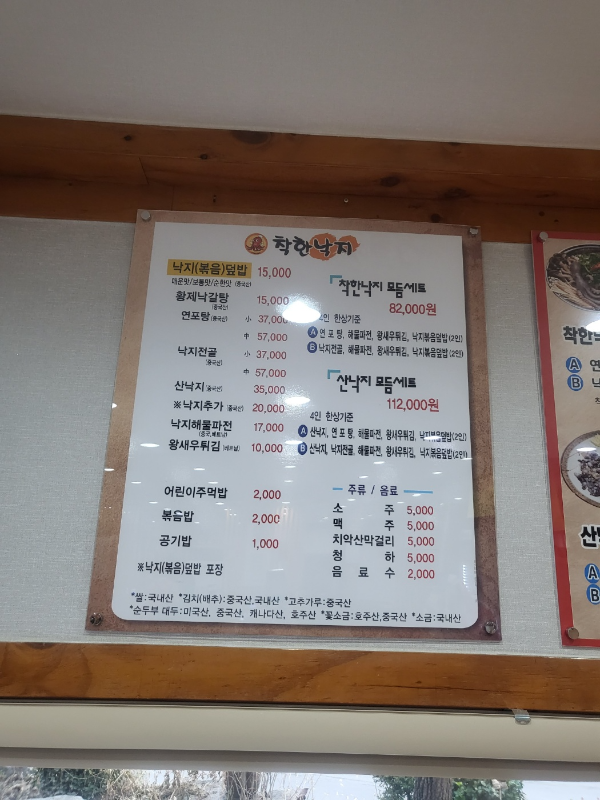 착한낙지
낙지(볶음)덮밥 15,000
매운맛/보통맛/순한맛 (중국산)
황제낙갈탕 15,000
(중국산)
연포탕 (중국산) 小 37,000
中 57,000
낙지전골 小 37,000
(중국산)
中 57,000
산낙지 (중국산) 35,000
※낙지추가 (중국산) 20,000
낙지해물파전 17,000
(중국,베트남)
왕새우튀김 (베트남) 10,000
어린이주먹밥 2,000
볶음밥 2,000
공기밥 1,000
※낙지(볶음)덮밥 포장
착한낙지 모듬세트
82,000원
4인 한상기준
A 연포탕, 해물파전, 왕새우튀김, 낙지볶음덮밥(2인)
B 낙지전골, 해물파전, 왕새우튀김, 낙지볶음덮밥(2인)
산낙지 모듬세트
112,000원
4인 한상기준
A 산낙지, 연포탕, 해물파전, 왕새우튀김, 낙지볶음덮밥(2인)
B 산낙지, 낙지전골, 해물파전, 왕새우튀김, 낙지볶음덮밥(2인)
주류 / 음료
소 주 5,000
맥 주 5,000
치악산막걸리 5,000
청 하 5,000
음 료 수 2,000
*쌀:국내산 *김치(배추):중국산,국내산 *고추가루:중국산
*순두부 대두:미국산, 중국산, 캐나다산, 호주산 *꽃소금:호주산,중국산 *소금:국내산
착한
A 연
B 낙
산
A
B